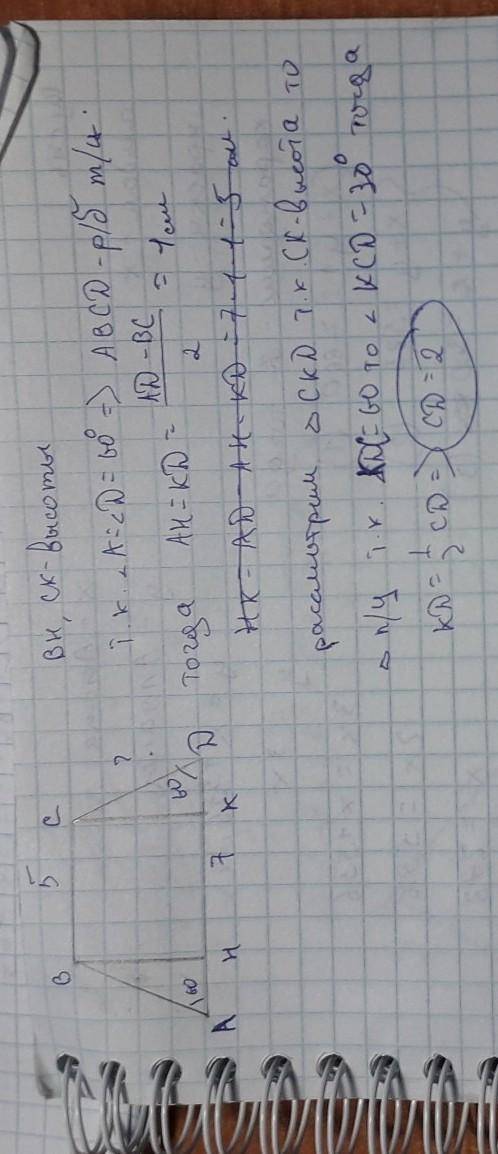 B 5 C
?
60 60
A H 7 K D
BH, CK-высоты
т.к. ∠A=∠D=60° => ABCD-р/б т/ц.
тогда AH=KD= (AD-BC)/2 = 1см
HK=AD-AH-KD=7-1-1=5 см.
рассмотрим △CKD т.к. CK-высота то
△ п/у т.к. ∠D=60 то ∠KCD=30° тогда
KD=1/2 CD => CD=2